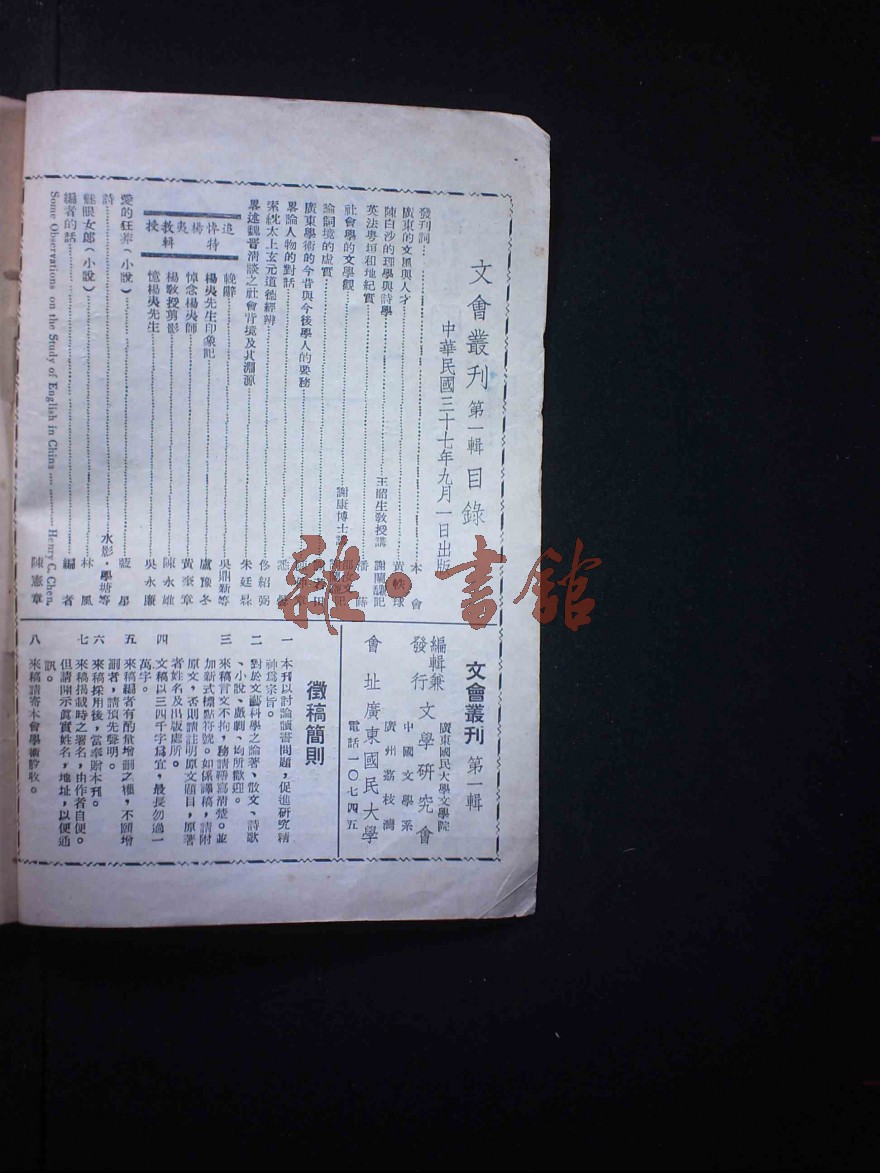 文會叢刊 第一輯 目錄
中華民國三十七年九月一日出版
發刊詞 本會
廣東的文風與人才 黃軼球
陳白沙的理學與詩學 王韶生教授講 謝蘭馨記
英法粵垣租地紀實 潘蒔
社會學的文學觀 謝康博士
論詞境的虛實
廣東學術的今昔與今後學人的要務
畧論人物的對話
索紞太上玄元道德經辨 佟紹弼
畧述魏晋清談之社會背境及其淵源 朱廷
追悼楊夷教授特輯
輓辭 吳鼎新等
楊夷先生印象記 盧豫冬
悼念楊夷師 黃豪章
楊教授剪影 陳永雄
憶楊夷先生 吳永廉
愛的狂葬（小說） 藍星
詩 水影・學塘等
魅眼女郎（小說） 林風
編者的話 編者
Some Observations on the Study of English in China Henry C. Chen. 陳憲章
文會叢刊 第一輯
編輯兼發行 廣東國民大學文學院 中國文學系 文學研究會
會址 廣州荔枝灣 廣東國民大學
電話一〇七四五
徵稿簡則
一 本刊以討論讀書問題，促進研究精
神爲宗旨。
二 對於文藝科學之論著、散文、詩歌
、小說、戲劇、均所歡迎。
三 來稿言文不拘，務請繕寫清楚。並
加新式標點符號。如係譯稿，請附
原文，否則請註明原文題目，原著
者姓名及出版處所。
四 文稿以三四千字爲宜，最長勿過一
萬字。
五 來稿編者有酌量增刪之權，不願增
刪者，請預先聲明。
六 來稿採用後，當奉贈本刊。
七 來稿揭載時之署名，由作者自便。
但請開示真實姓名，地址，以便通
訊。
八 來稿請寄本會學術股收。
雜・書館